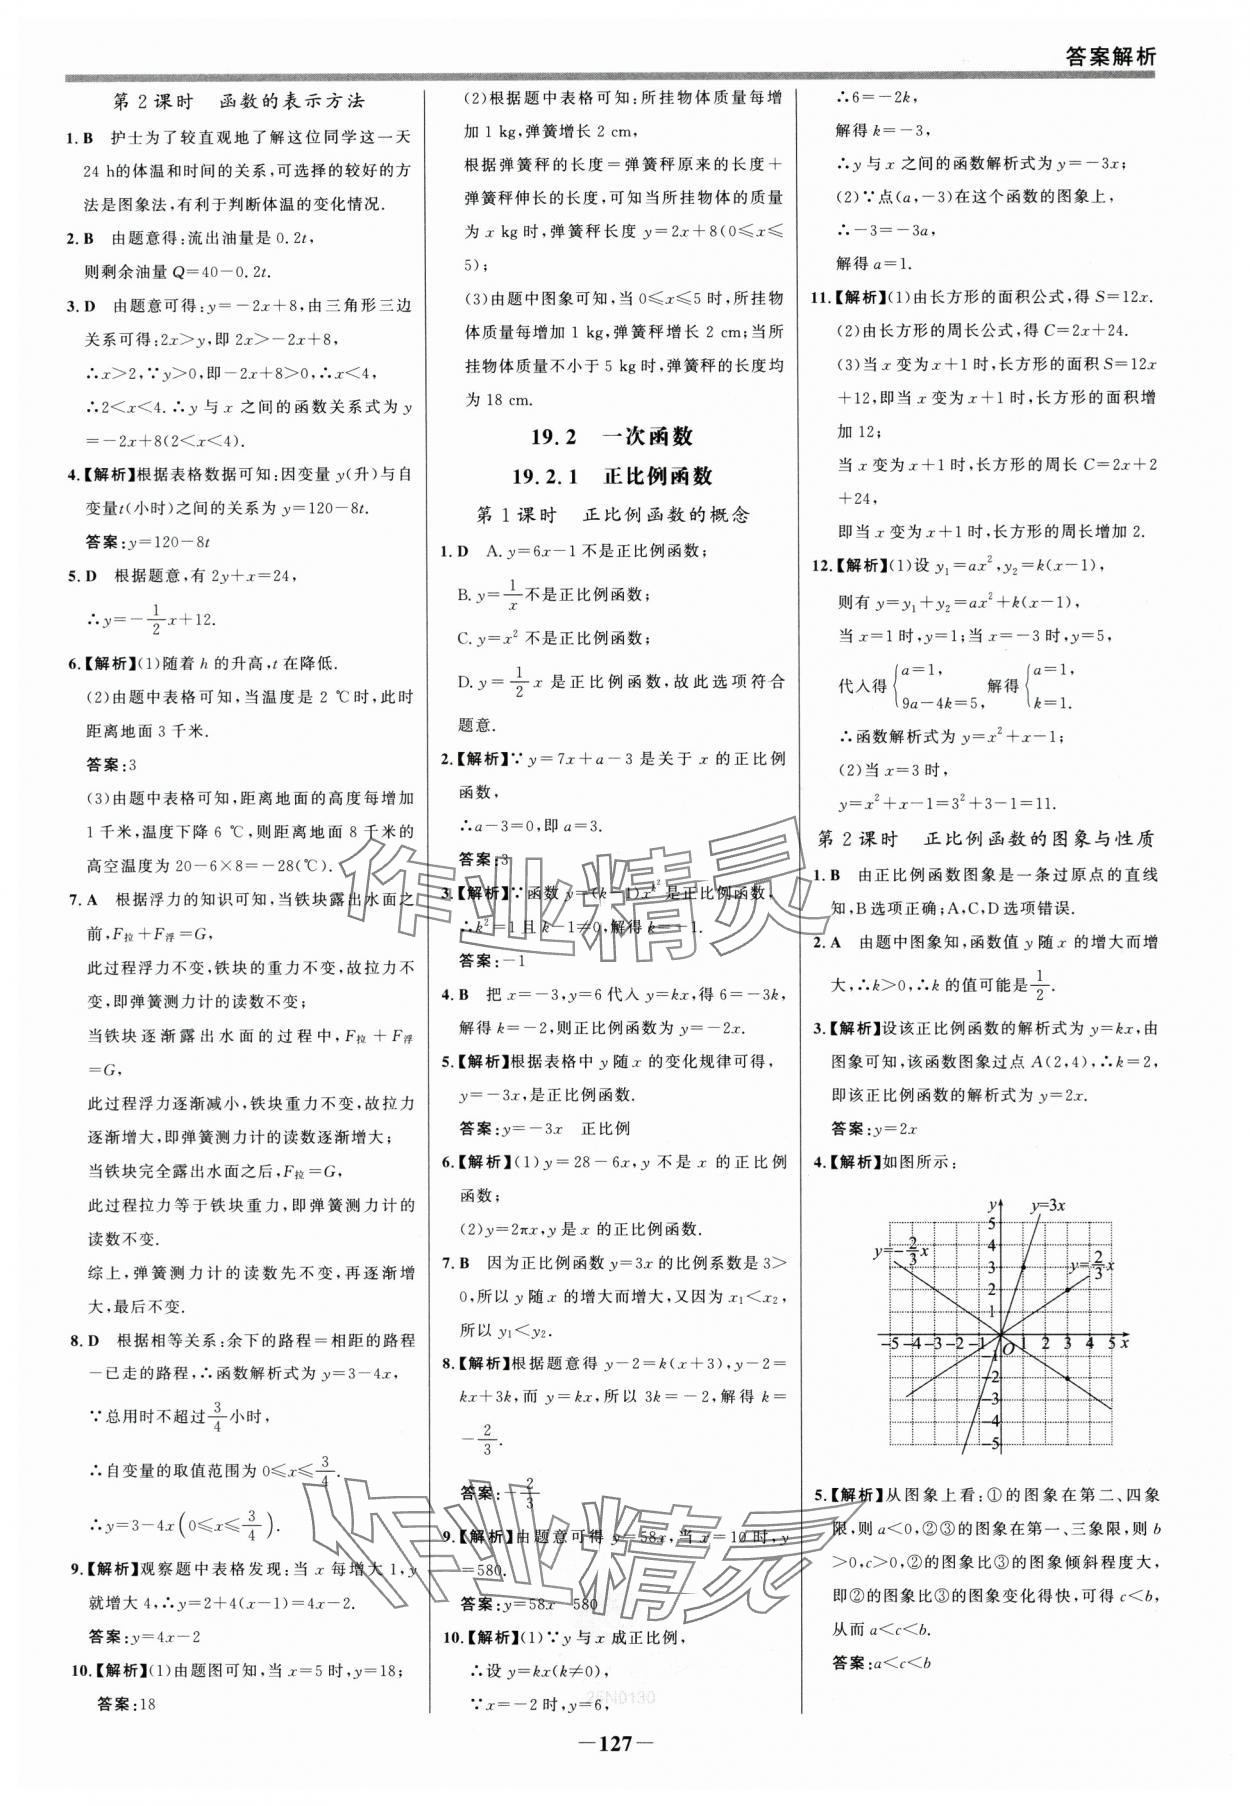 答案解析
第2课时　函数的表示方法
1. B　护士为了较直观地了解这位同学这一天
24 h的体温和时间的关系,可选择的较好的方
法是图象法,有利于判断体温的变化情况.
2. B　由题意得:流出油量是0.2t,
则剩余油量Q=40-0.2t.
3. D　由题意可得:y=-2x+8,由三角形三边
关系可得:2x>y,即2x>-2x+8,
∴x>2,∵y>0,即-2x+8>0,∴x<4,
∴2<x<4.∴y与x之间的函数关系式为y
=-2x+8(2<x<4).
4.【解析】根据表格数据可知:因变量y(升)与自
变量t(小时)之间的关系为y=120-8t.
答案:y=120-8t
5. D　根据题意,有2y+x=24,
∴y=-1/2x+12.
6.【解析】(1)随着h的升高,t在降低.
(2)由题中表格可知,当温度是2 ℃时,此时
距离地面3千米.
答案:3
(3)由题中表格可知,距离地面的高度每增加
1千米,温度下降6 ℃,则距离地面8千米的
高空温度为20-6×8=-28(℃).
7. A　根据浮力的知识可知,当铁块露出水面之
前,F拉+F浮=G,
此过程浮力不变,铁块的重力不变,故拉力不
变,即弹簧测力计的读数不变;
当铁块逐渐露出水面的过程中,F拉+F浮
=G,
此过程浮力逐渐减小,铁块重力不变,故拉力
逐渐增大,即弹簧测力计的读数逐渐增大;
当铁块完全露出水面之后,F拉=G,
此过程拉力等于铁块重力,即弹簧测力计的
读数不变.
综上,弹簧测力计的读数先不变,再逐渐增
大,最后不变.
8. D　根据相等关系:余下的路程=相距的路程
-已走的路程,∴函数解析式为y=3-4x,
∵总用时不超过3/4小时,
∴自变量的取值范围为0≤x≤3/4.
∴y=3-4x(0≤x≤3/4).
9.【解析】观察题中表格发现:当x每增大1,y
就增大4,∴y=2+4(x-1)=4x-2.
答案:y=4x-2
10.【解析】(1)由题图可知,当x=5时,y=18;
答案:18
(2)根据题中表格可知:所挂物体质量每增
加1 kg,弹簧增长2 cm,
根据弹簧秤的长度=弹簧秤原来的长度+
弹簧秤伸长的长度,可知当所挂物体的质量
为x kg时,弹簧秤长度y=2x+8(0≤x≤
5);
(3)由题中图象可知,当0≤x≤5时,所挂物
体质量每增加1 kg,弹簧秤增长2 cm;当所
挂物体质量不小于5 kg时,弹簧秤的长度均
为18 cm.
19.2　一次函数
19.2.1　正比例函数
第1课时　正比例函数的概念
1. D　A.y=6x-1不是正比例函数;
B.y=1/x不是正比例函数;
C.y=x²不是正比例函数;
D.y=1/2x是正比例函数,故此选项符合
题意.
2.【解析】∵y=7x+a-3是关于x的正比例
函数,
∴a-3=0,即a=3.
答案:3
3.【解析】∵函数y=(k-1)x^k²是正比例函数,
∴k²=1且k-1≠0,解得k=-1.
答案:-1
4. B　把x=-3,y=6代入y=kx,得6=-3k,
解得k=-2,则正比例函数为y=-2x.
5.【解析】根据表格中y随x的变化规律可得,
y=-3x,是正比例函数.
答案:y=-3x　正比例
6.【解析】(1)y=28-6x,y不是x的正比例
函数;
(2)y=2πx,y是x的正比例函数.
7. B　因为正比例函数y=3x的比例系数是3>
0,所以y随x的增大而增大,又因为x₁<x₂,
所以y₁<y₂.
8.【解析】根据题意得y-2=k(x+3),y-2=
kx+3k,而y=kx,所以3k=-2,解得k=
-2/3.
答案:-2/3
9.【解析】由题意可得y=58x,当x=10时,y
=580.
答案:y=58x　580
10.【解析】(1)∵y与x成正比例,
∴设y=kx(k≠0),
∵x=-2时,y=6,
∴6=-2k,
解得k=-3,
∴y与x之间的函数解析式为y=-3x;
(2)∵点(a,-3)在这个函数的图象上,
∴-3=-3a,
解得a=1.
11.【解析】(1)由长方形的面积公式,得S=12x.
(2)由长方形的周长公式,得C=2x+24.
(3)当x变为x+1时,长方形的面积S=12x
+12,即当x变为x+1时,长方形的面积增
加12;
当x变为x+1时,长方形的周长C=2x+2
+24,
即当x变为x+1时,长方形的周长增加2.
12.【解析】(1)设y₁=ax²,y₂=k(x-1),
则有y=y₁+y₂=ax²+k(x-1),
当x=1时,y=1;当x=-3时,y=5,
代入得{a=1, 9a-4k=5,解得{a=1, k=1.
∴函数解析式为y=x²+x-1;
(2)当x=3时,
y=x²+x-1=3²+3-1=11.
第2课时　正比例函数的图象与性质
1. B　由正比例函数图象是一条过原点的直线
知,B选项正确;A,C,D选项错误.
2. A　由题中图象知,函数值y随x的增大而增
大,∴k>0,∴k的值可能是1/2.
3.【解析】设该正比例函数的解析式为y=kx,由
图象可知,该函数图象过点A(2,4),∴k=2,
即该正比例函数的解析式为y=2x.
答案:y=2x
4.【解析】如图所示:
y　y=3x
y=-2/3x
y=2/3x
5
4
3
2
1
-5-4-3-2-1 O 1 2 3 4 5 x
-1
-2
-3
-4
-5
5.【解析】从图象上看:①的图象在第二、四象
限,则a<0,②③的图象在第一、三象限,则b
>0,c>0,②的图象比③的图象倾斜程度大,
即②的图象比③的图象变化得快,可得c<b,
从而a<c<b.
答案:a<c<b
作业精灵
作业精灵
25N0130
—127—